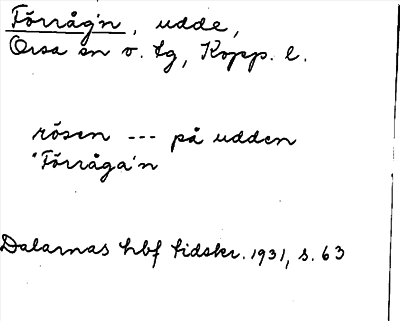 Förråg'n, udde,
Orsa sn v. tg, Kopp. l.
rösen --- på udden
"Förråga'n
Dalarnas hbf tidskr. 1931, s. 63